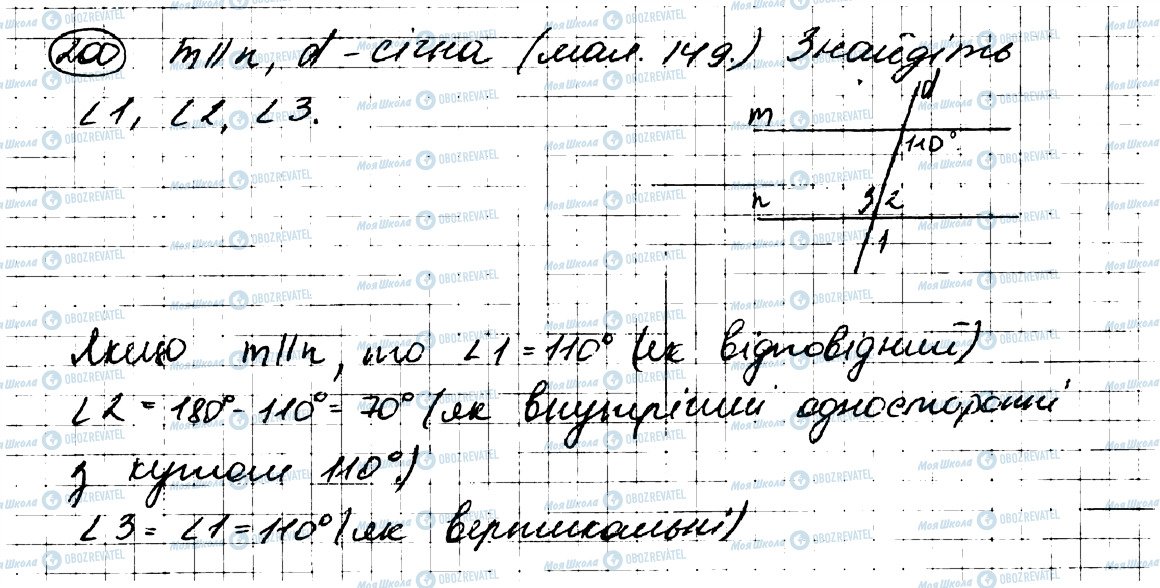 200 m||n, d - січна (мал. 149.) Знайдіть
∠1, ∠2, ∠3.
d
m
110°
n 3 2
1
Якщо m||n, то ∠1 = 110° (як відповідний)
∠2 = 180° - 110° = 70° (як внутрішній односторонній
з кутом 110°.)
∠3 = ∠1 = 110° (як вертикальні)